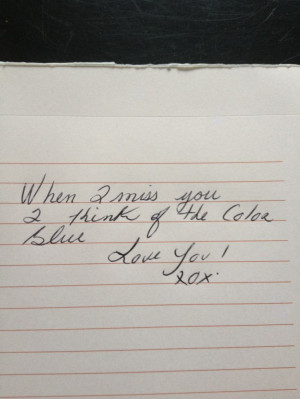 When I miss you
I think of the Color
Blue
Love You!
XOX.